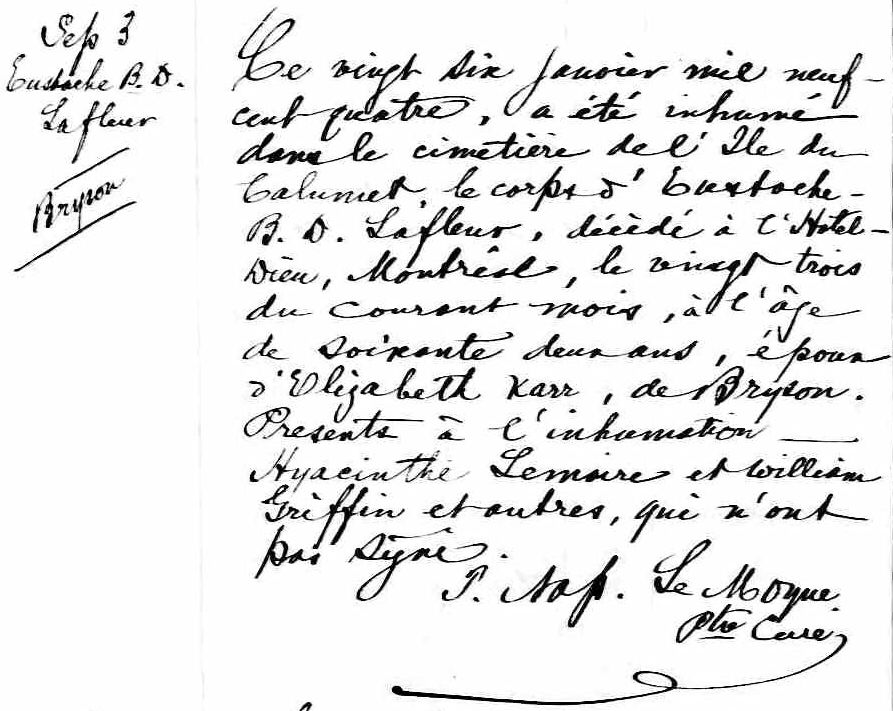 Sep 3
Eustache B. D.
Lafleur
Bryson
Ce vingt six janvier mil neuf-
cent quatre, a été inhumé
dans le cimetière de l'Ile du
Calumet, le corps d'Eustache-
B. D. Lafleur, décédé à l'Hotel-
Dieu, Montréal, le vingt trois
du courant mois, à l'âge
de soixante deux ans, époux
d'Elizabeth Karr, de Bryson.
Presents à l'inhumation
Hyacinthe Lemaire et William
Griffin et autres, qui n'ont
pas signé.
P. Nap. Le Moyne
Ptre Curé